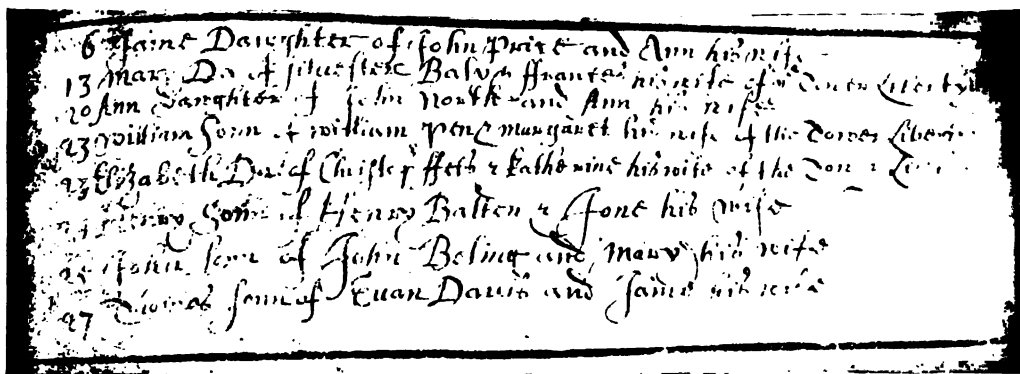 6 Jaine Daughter of John Price and Ann his wife
13 Mary Da of Silvester Balv & ffrances his wife of ye Tower Liberty
20 Ann Daughter of John North and Ann his wife
23 William Sonn of William Pen & Margaret his wife of the Tower Liberty
23 Elizabeth Dor of Christop ffets & Katherine his wife of the Tower
Henry Sonn of Henry Balten & Jone his wife
25 John sonn of John Beling and Mary his wife
27 Thomas sonn of Evan Davis and Jaine his wife